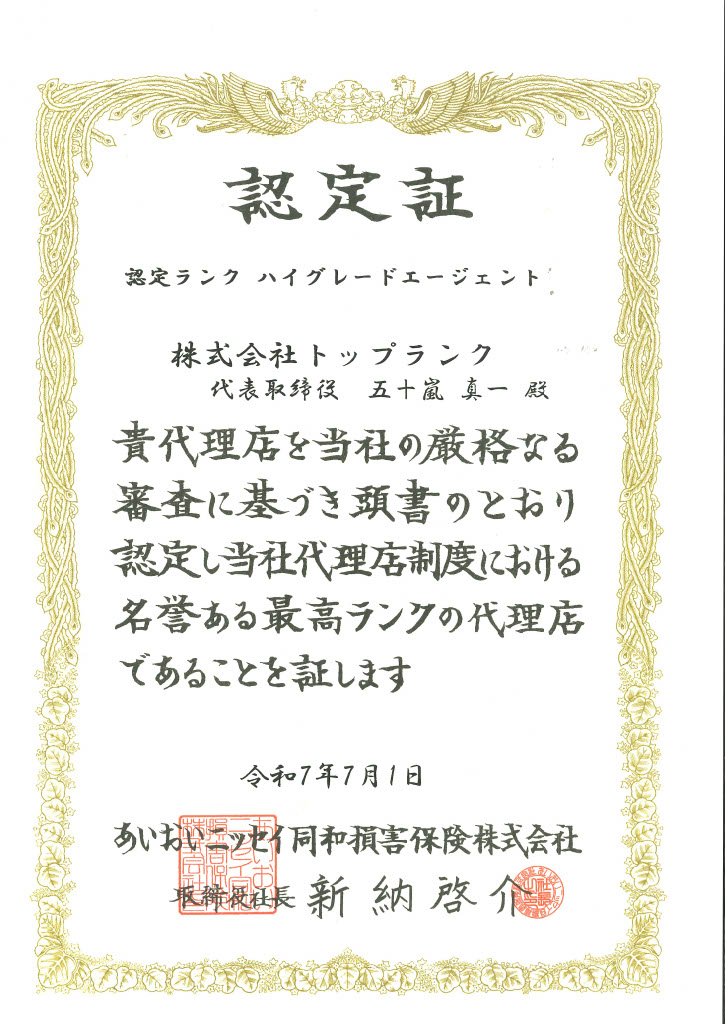 認定証
認定ランク ハイグレードエージェント
株式会社トップランク
代表取締役 五十嵐 真一 殿
貴代理店を当社の厳格なる
審査に基づき頭書のとおり
認定し当社代理店制度における
名誉ある最高ランクの代理店
であることを証します
令和7年7月1日
あいおいニッセイ同和損害保険株式会社
取締役社長 新納啓介